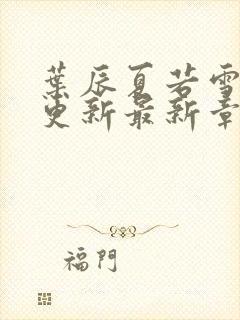 葉辰夏若雪
更新最新章
福門